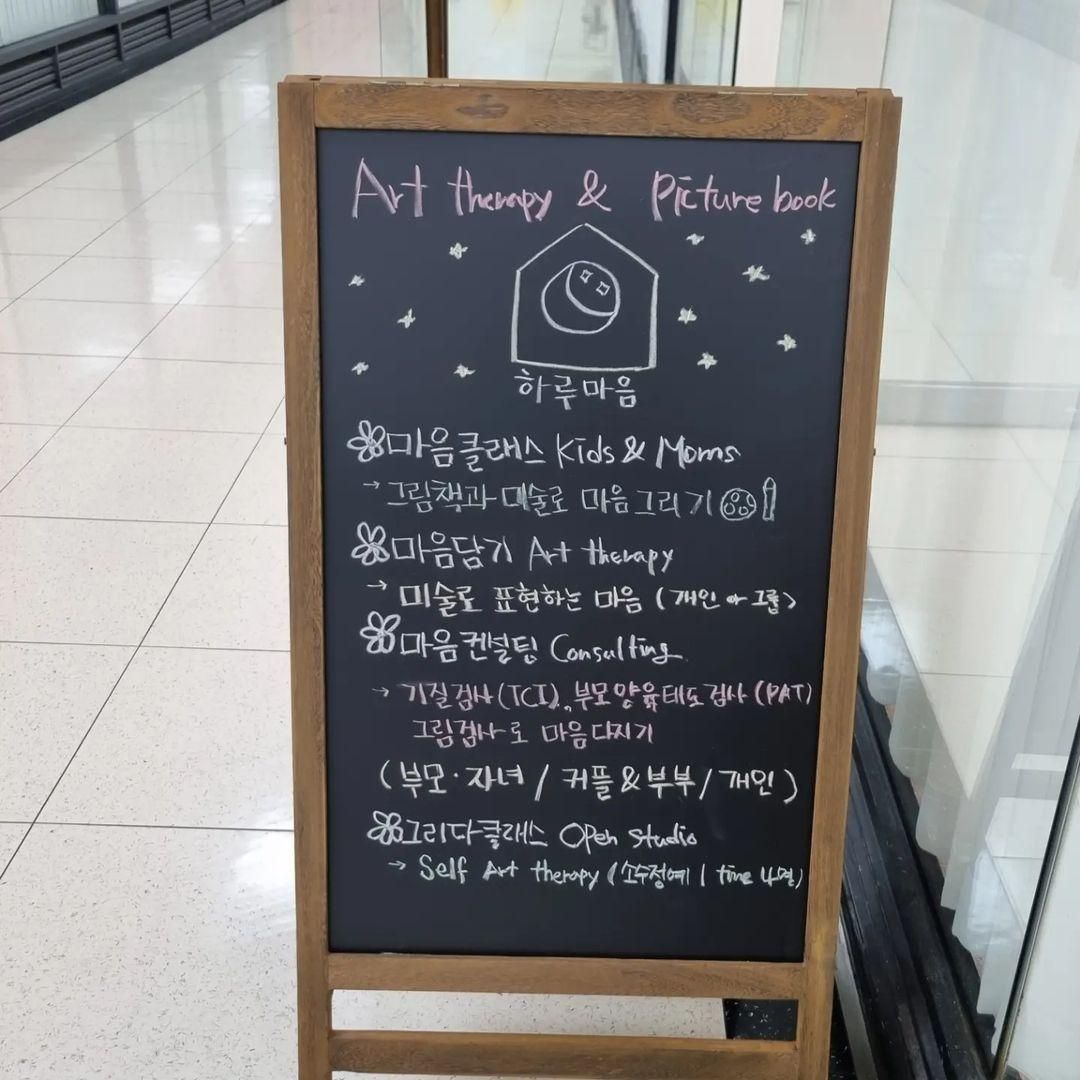 Art therapy & Picture book
하루마음
마음클래스 Kids & Moms
→ 그림책과 미술로 마음그리기
마음담기 Art therapy
→ 미술로 표현하는 마음 (개인 or 그룹)
마음컨설팅 Consulting
→ 기질검사(TCI), 부모양육태도검사(PAT)
그림검사로 마음다지기
(부모·자녀 / 커플&부부 / 개인)
그리다클래스 Open studio
→ Self Art therapy (소수정예 1 time 4명)